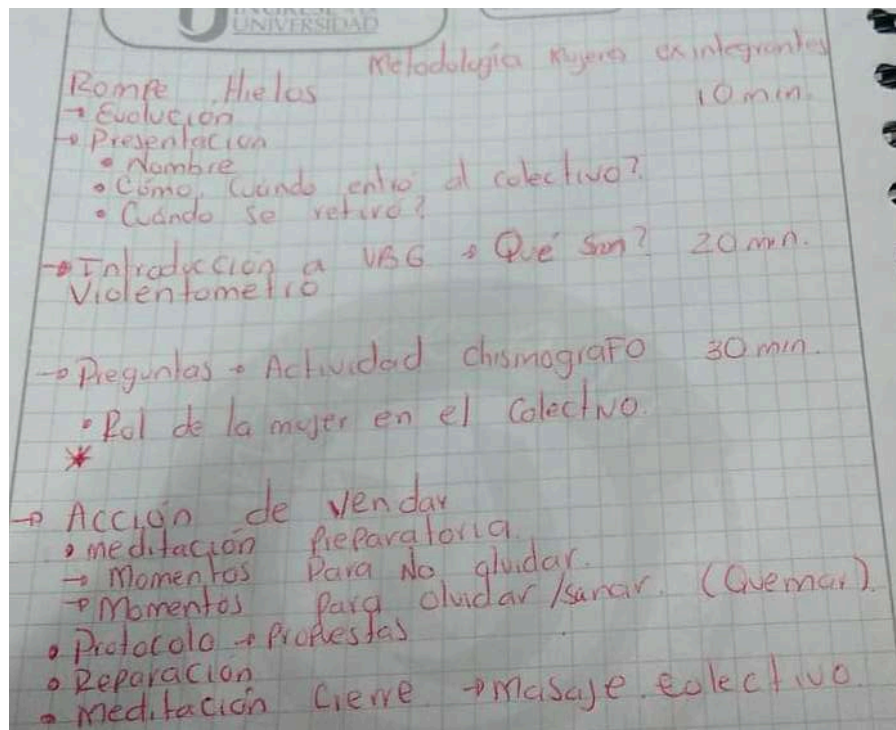 UNIVERSIDAD
Metodología Mujeres exintegrantes
Rompe Hielos 10 min.
→ Evolución
→ Presentación
• Nombre
• Cómo, Cuándo entró al colectivo?
• Cuándo se retiró?
→ Introducción a VBG → Qué Son? 20 min.
Violentometro
→ Preguntas → Actividad chismografo 30 min.
• Rol de la mujer en el Colectivo.
*
→ Acción de Vendar
• meditación Preparatoria.
→ Momentos Para No olvidar.
→ Momentos Para olvidar/sanar. (Quemar).
• Protocolo → Propuestas
• Reparación
• meditación Cierre → masaje colectivo